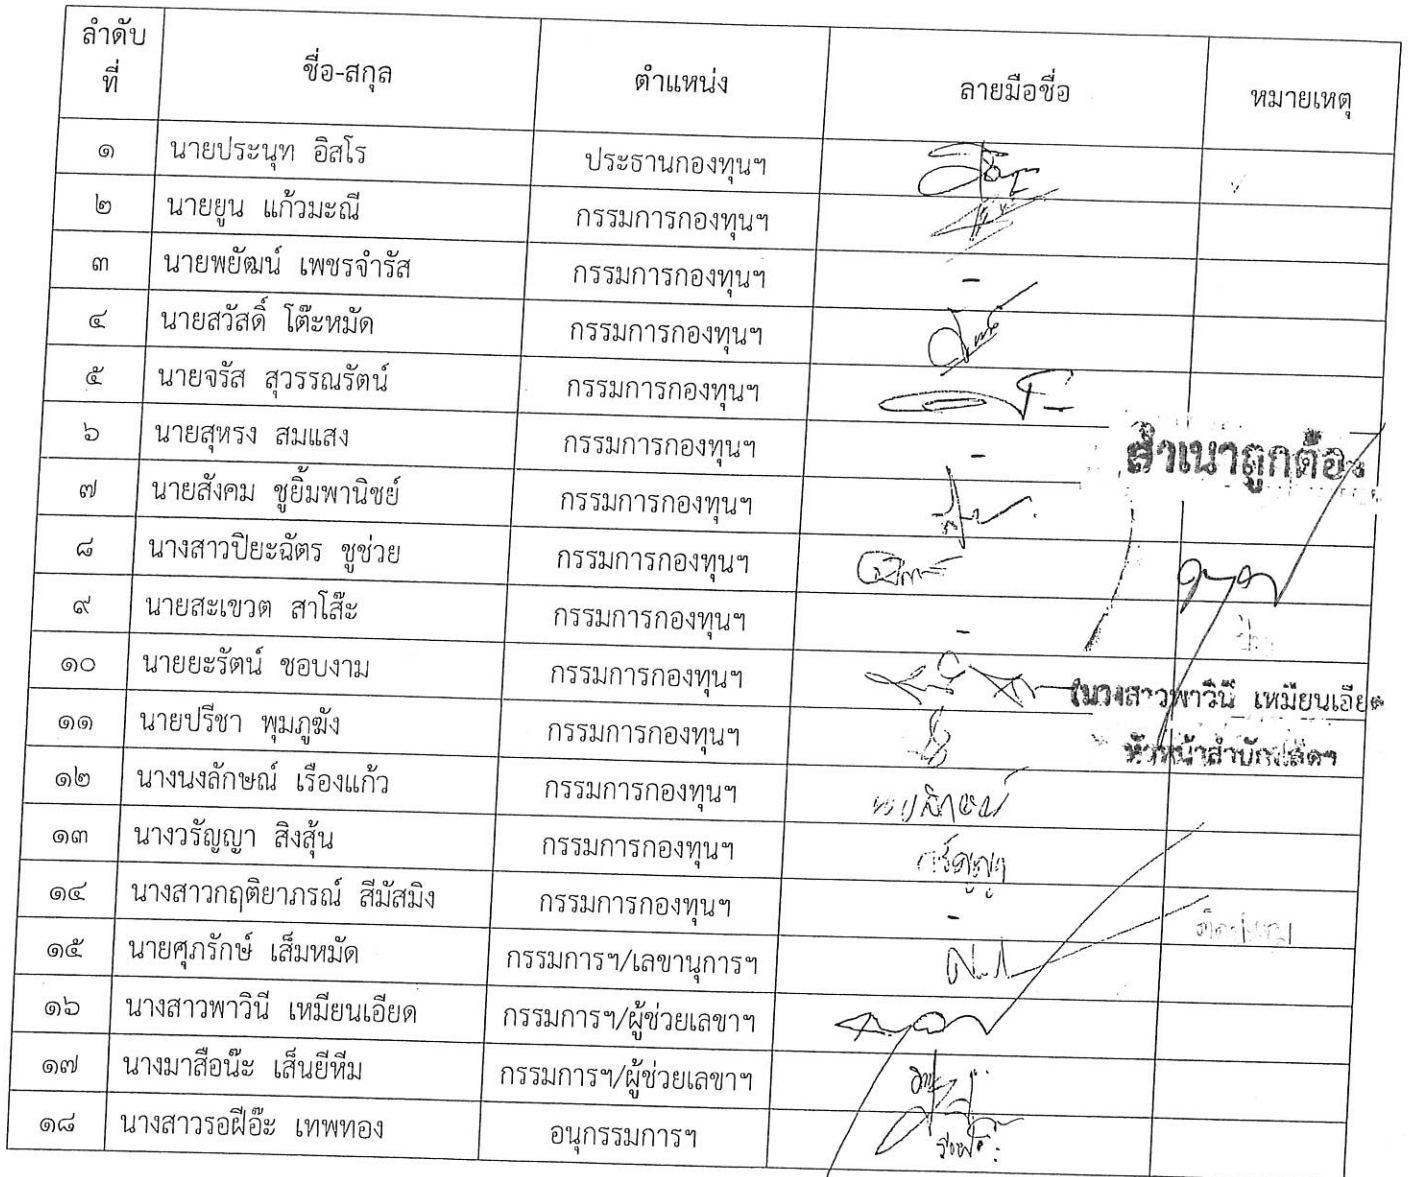 ลำดับ
ที่
ชื่อ-สกุล
ตำแหน่ง
ลายมือชื่อ
หมายเหตุ
๑ นายประนุท อิสโร ประธานกองทุนฯ
๒ นายยูน แก้วมะณี กรรมการกองทุนฯ
๓ นายพยัฒน์ เพชรจำรัส กรรมการกองทุนฯ -
๔ นายสวัสดิ์ โต๊ะหมัด กรรมการกองทุนฯ
๕ นายจรัส สุวรรณรัตน์ กรรมการกองทุนฯ
๖ นายสุหรง สมแสง กรรมการกองทุนฯ -
สำเนาถูกต้อง
๗ นายสังคม ชูยิ้มพานิชย์ กรรมการกองทุนฯ
๘ นางสาวปิยะฉัตร ชูช่วย กรรมการกองทุนฯ
๙ นายสะเขวต สาโส๊ะ กรรมการกองทุนฯ -
๑๐ นายยะรัตน์ ชอบงาม กรรมการกองทุนฯ
(นางสาวพาวินี เหมียนเอียด
๑๑ นายปรีชา พุมภูฆัง กรรมการกองทุนฯ
หัวหน้าสำนักปลัดฯ
๑๒ นางนงลักษณ์ เรืองแก้ว กรรมการกองทุนฯ นงลักษณ์
๑๓ นางวรัญญา สิงสุ้น กรรมการกองทุนฯ วรัญญา
๑๔ นางสาวกฤติยาภรณ์ สีมัสมิง กรรมการกองทุนฯ -
๑๕ นายศุภรักษ์ เส็มหมัด กรรมการฯ/เลขานุการฯ
๑๖ นางสาวพาวินี เหมียนเอียด กรรมการฯ/ผู้ช่วยเลขาฯ
๑๗ นางมาสือน๊ะ เส็นยีหีม กรรมการฯ/ผู้ช่วยเลขาฯ
๑๘ นางสาวรอฝีอ๊ะ เทพทอง อนุกรรมการฯ